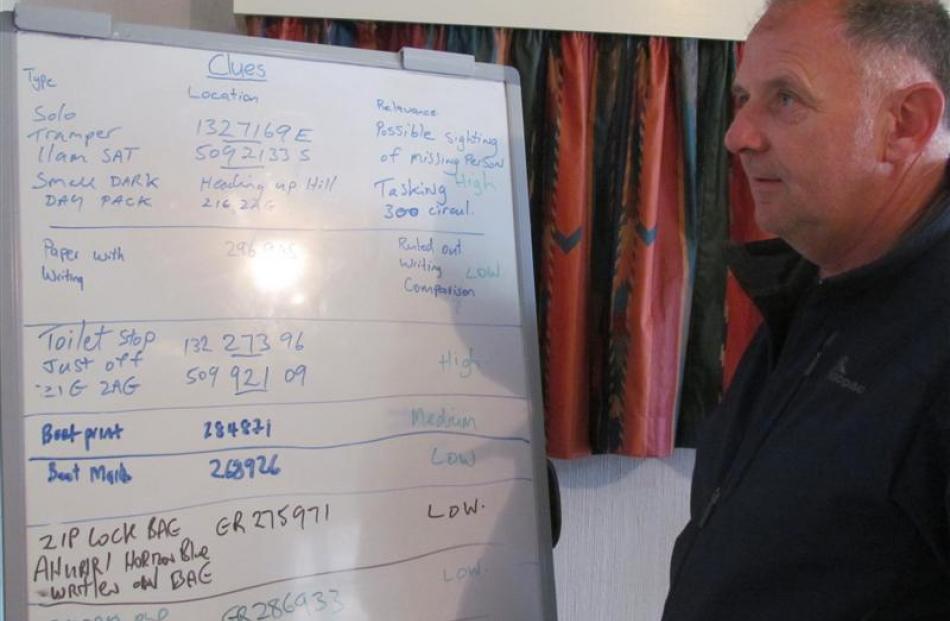 Clues
Type
Location
Relevance
Solo
Tramper
11am SAT
1327169E
5092133 S
Possible sighting
of missing Person
High
Small DARK
DAY PACK
Heading up Hill
Tasking
300 circul.
Paper with
Writing
Ruled out
Writing
Comparison
LOW
Toilet stop
Just off
ZIG ZAG
132 273 96
509 921 09
High
Boot print
284871
Medium
Boot Mark
268926
LOW
ZIP LOCK BAG
GR 275971
LOW.
WRITTEN ON BAG
GR286933
LOW.